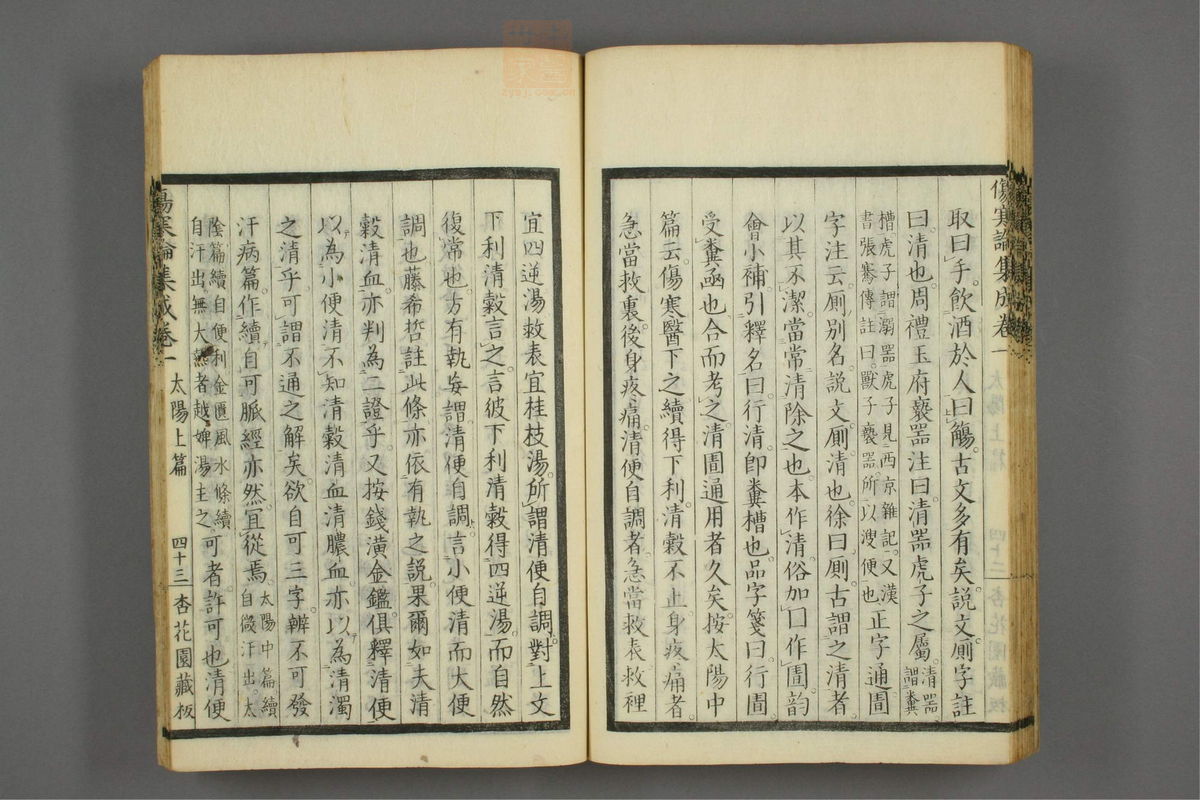 傷寒論集成卷一
取曰手。飲酒於人曰觴。古文多有矣。說文。廁字註
曰。清也。周禮玉府褻器注曰。清器虎子之屬。清器謂糞
槽虎子謂溺器虎子見西京雜記。又漢書張騫傳註曰。獸子褻器所以溲便也正字通圊
字注云。廁別名。說文。廁清也。徐曰。廁古謂之清者。
以其不潔。當常清除之也。本作清。俗加囗作圊。韵
會小補引釋名曰。行清。卽糞槽也。品字箋曰。行圊
受糞函也。合而考之。清圊通用者久矣。按太陽中
篇云。傷寒醫下之。續得下利。清穀不止。身疼痛者。
急當救裏。後身疼痛。清便自調者。急當救表。救裡
宜四逆湯。救表宜桂枝湯。所謂清便自調。對上文
下利清穀言之。言彼下利清穀得四逆湯。而自然
復常也。方有執妄謂。清便自調。言小便清而大便
調也。藤希哲註此條。亦依有執之說。果爾如夫清
穀清血。亦判為二證乎。又按錢潢金鑑。俱釋清便
以為小便清。不知清穀清血清膿血。亦以為清濁
之清乎。可謂不通之解矣。欲自可三字。辨不可發
汗病篇。作續自可。脈經亦然。宜從焉。太陽中篇續自微汗出。太
陰篇續自便利。金匱風水條續自汗出。無大熱者越婢湯主之。可者。許可也。清便
傷寒論集成卷一 太陽上篇 四十三 杏花園藏板